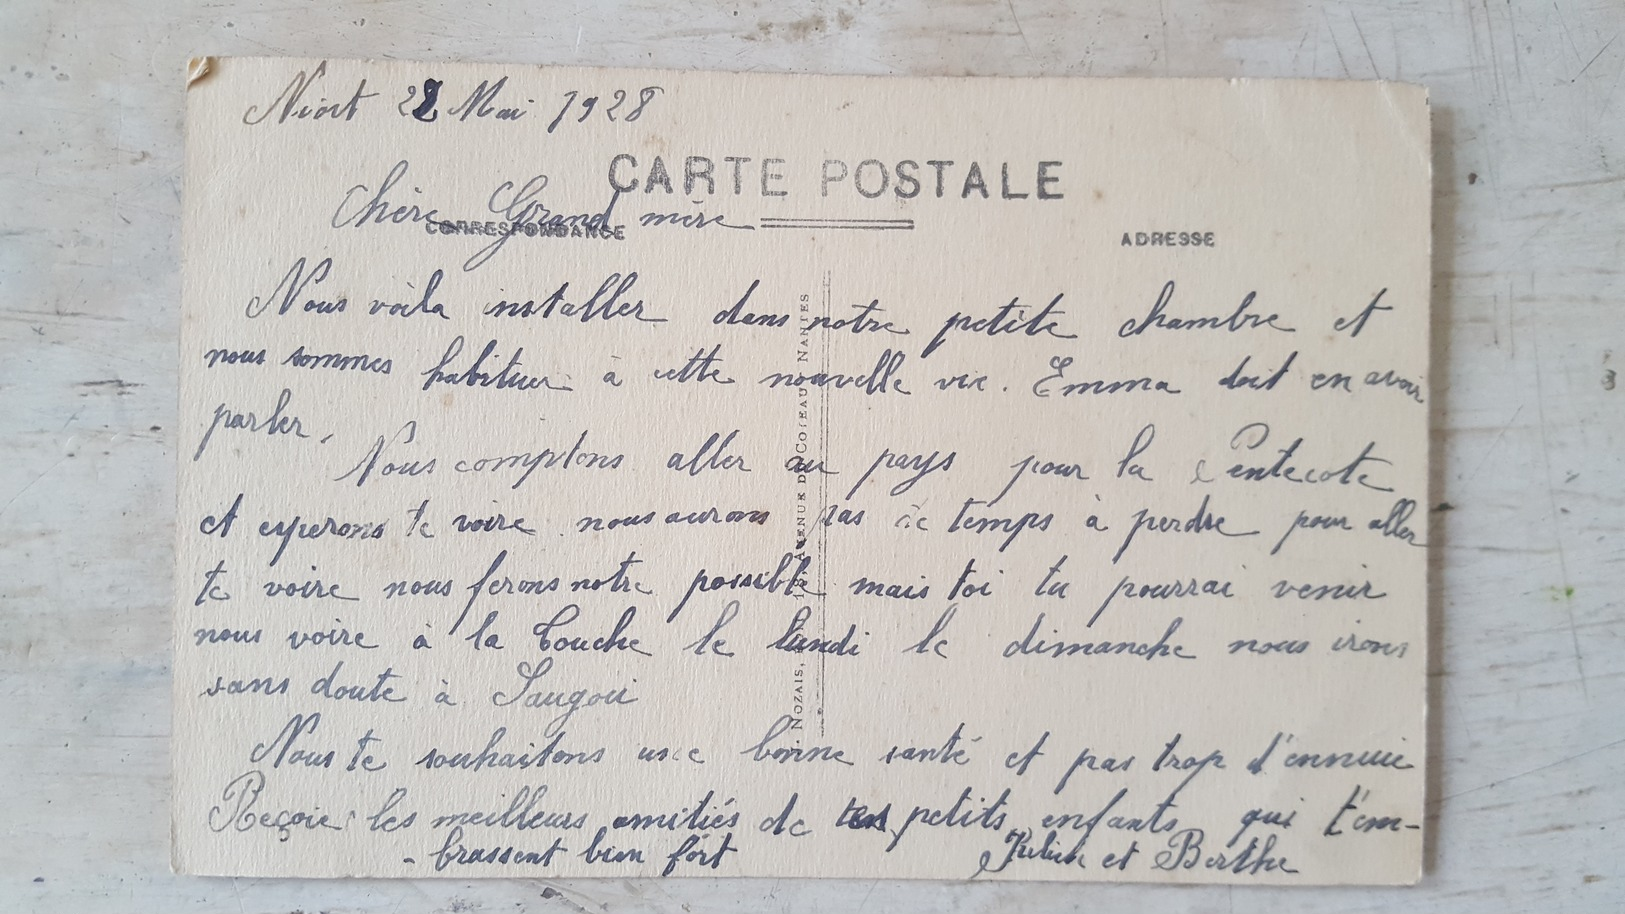 Niort 22 Mai 1928
CARTE POSTALE
Chère Grand mère
CORRESPONDANCE
ADRESSE
Nous voila installer dans notre petite chambre et
nous sommes habituer à cette nouvelle vie. Emma doit en avoir
parler.
Nous comptons aller au pays pour la Pentecote
et esperons te voire nous aurons pas de temps à perdre pour aller
te voire nous ferons notre possible mais toi tu pourrai venir
nous voire à la Couche le lundi le dimanche nous irons
sans doute à Saugoui
Nous te souhaitons une bonne santé et pas trop d'ennuie
Reçoie les meilleurs amitiés de tes petits enfants qui t'em-
-brassent bien fort
Julien et Berthe
NOZAIS, AVENUE DU COTEAU, NANTES